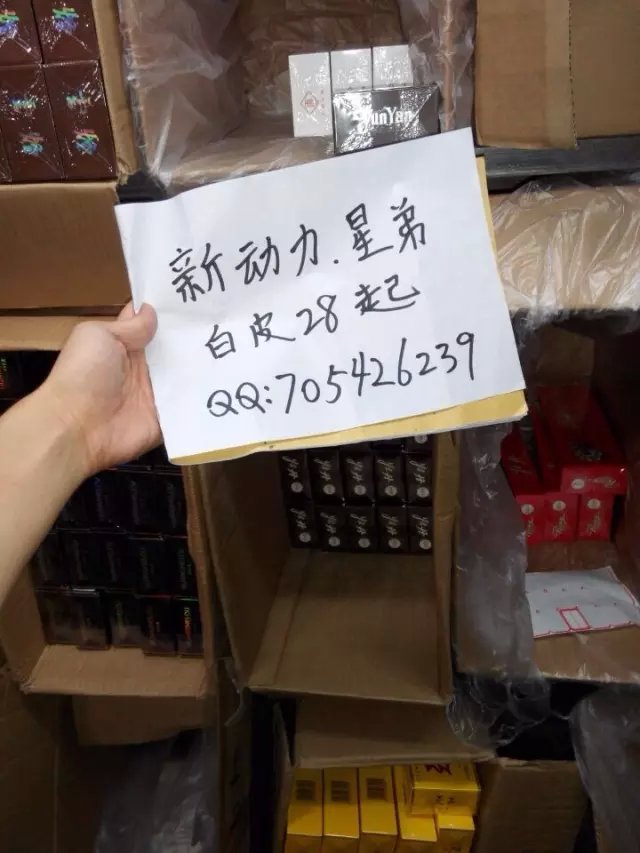 YunYan
新动力.星弟
白皮28起
QQ:705426239